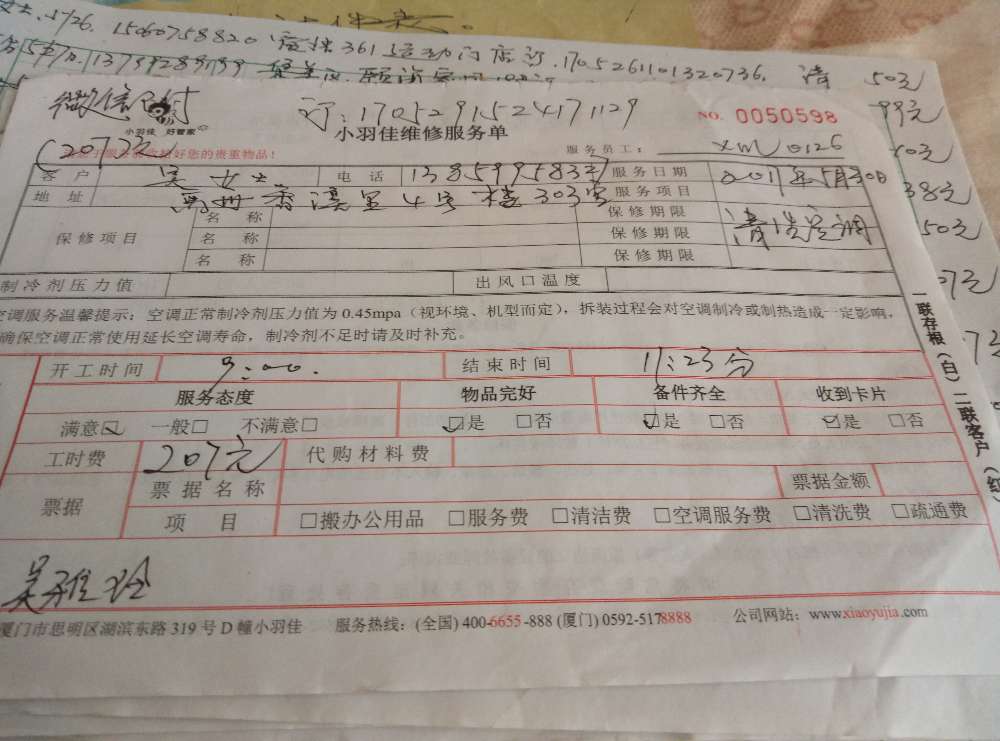 15060758820
361
店订.1705261101320736. 清 50元
99元
38元
50元
微信支付
订:1705291524171129
NO. 0050598
小羽佳 好管家
小羽佳维修服务单
(207元)
好您的贵重物品!
服务员工: XM0126
客户 吴女士 电话 服务日期 2017年5月30日
地址 4号楼303室 服务项目 清洗空调
保修项目 名称 保修期限
名称 保修期限
名称 保修期限
制冷剂压力值 出风口温度
空调服务温馨提示:空调正常制冷剂压力值为0.45mpa(视环境、机型而定),拆装过程会对空调制冷或制热造成一定影响,
确保空调正常使用延长空调寿命,制冷剂不足时请及时补充。
开工时间 9:00. 结束时间 11:23分
服务态度 物品完好 备件齐全 收到卡片
满意☑ 一般□ 不满意□ ☑是 □否 ☑是 □否 ☑是 □否
工时费 207元 代购材料费
票据 票据名称 票据金额
项目 □搬办公用品 □服务费 □清洁费 □空调服务费 □清洗费 □疏通费
一联存根(白) 二联客户(红
吴雅玲
厦门市思明区湖滨东路319号D幢小羽佳 服务热线:(全国)400-6655-888(厦门)0592-5178888 公司网站:www.xiaoyujia.com